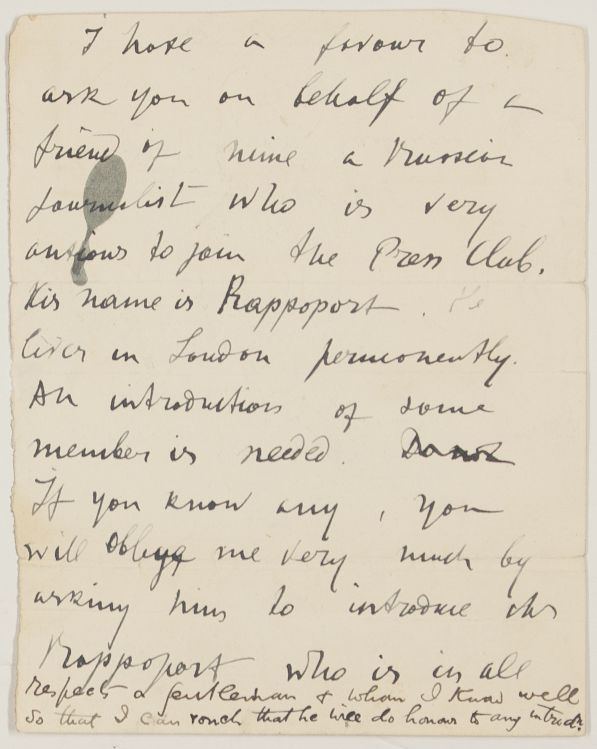 I have a favour to
ask you on behalf of a
friend of mine a Russian
journalist who is very
anxious to join the Press Club.
His name is Rappoport. He
lives in London permanently.
An introduction of some
member is needed. Do not
If you know any, you
will oblige me very much by
asking him to introduce
Rappoport who is in all
respects a gentleman & whom I know well
so that I can vouch that he will do honour to any introdn.